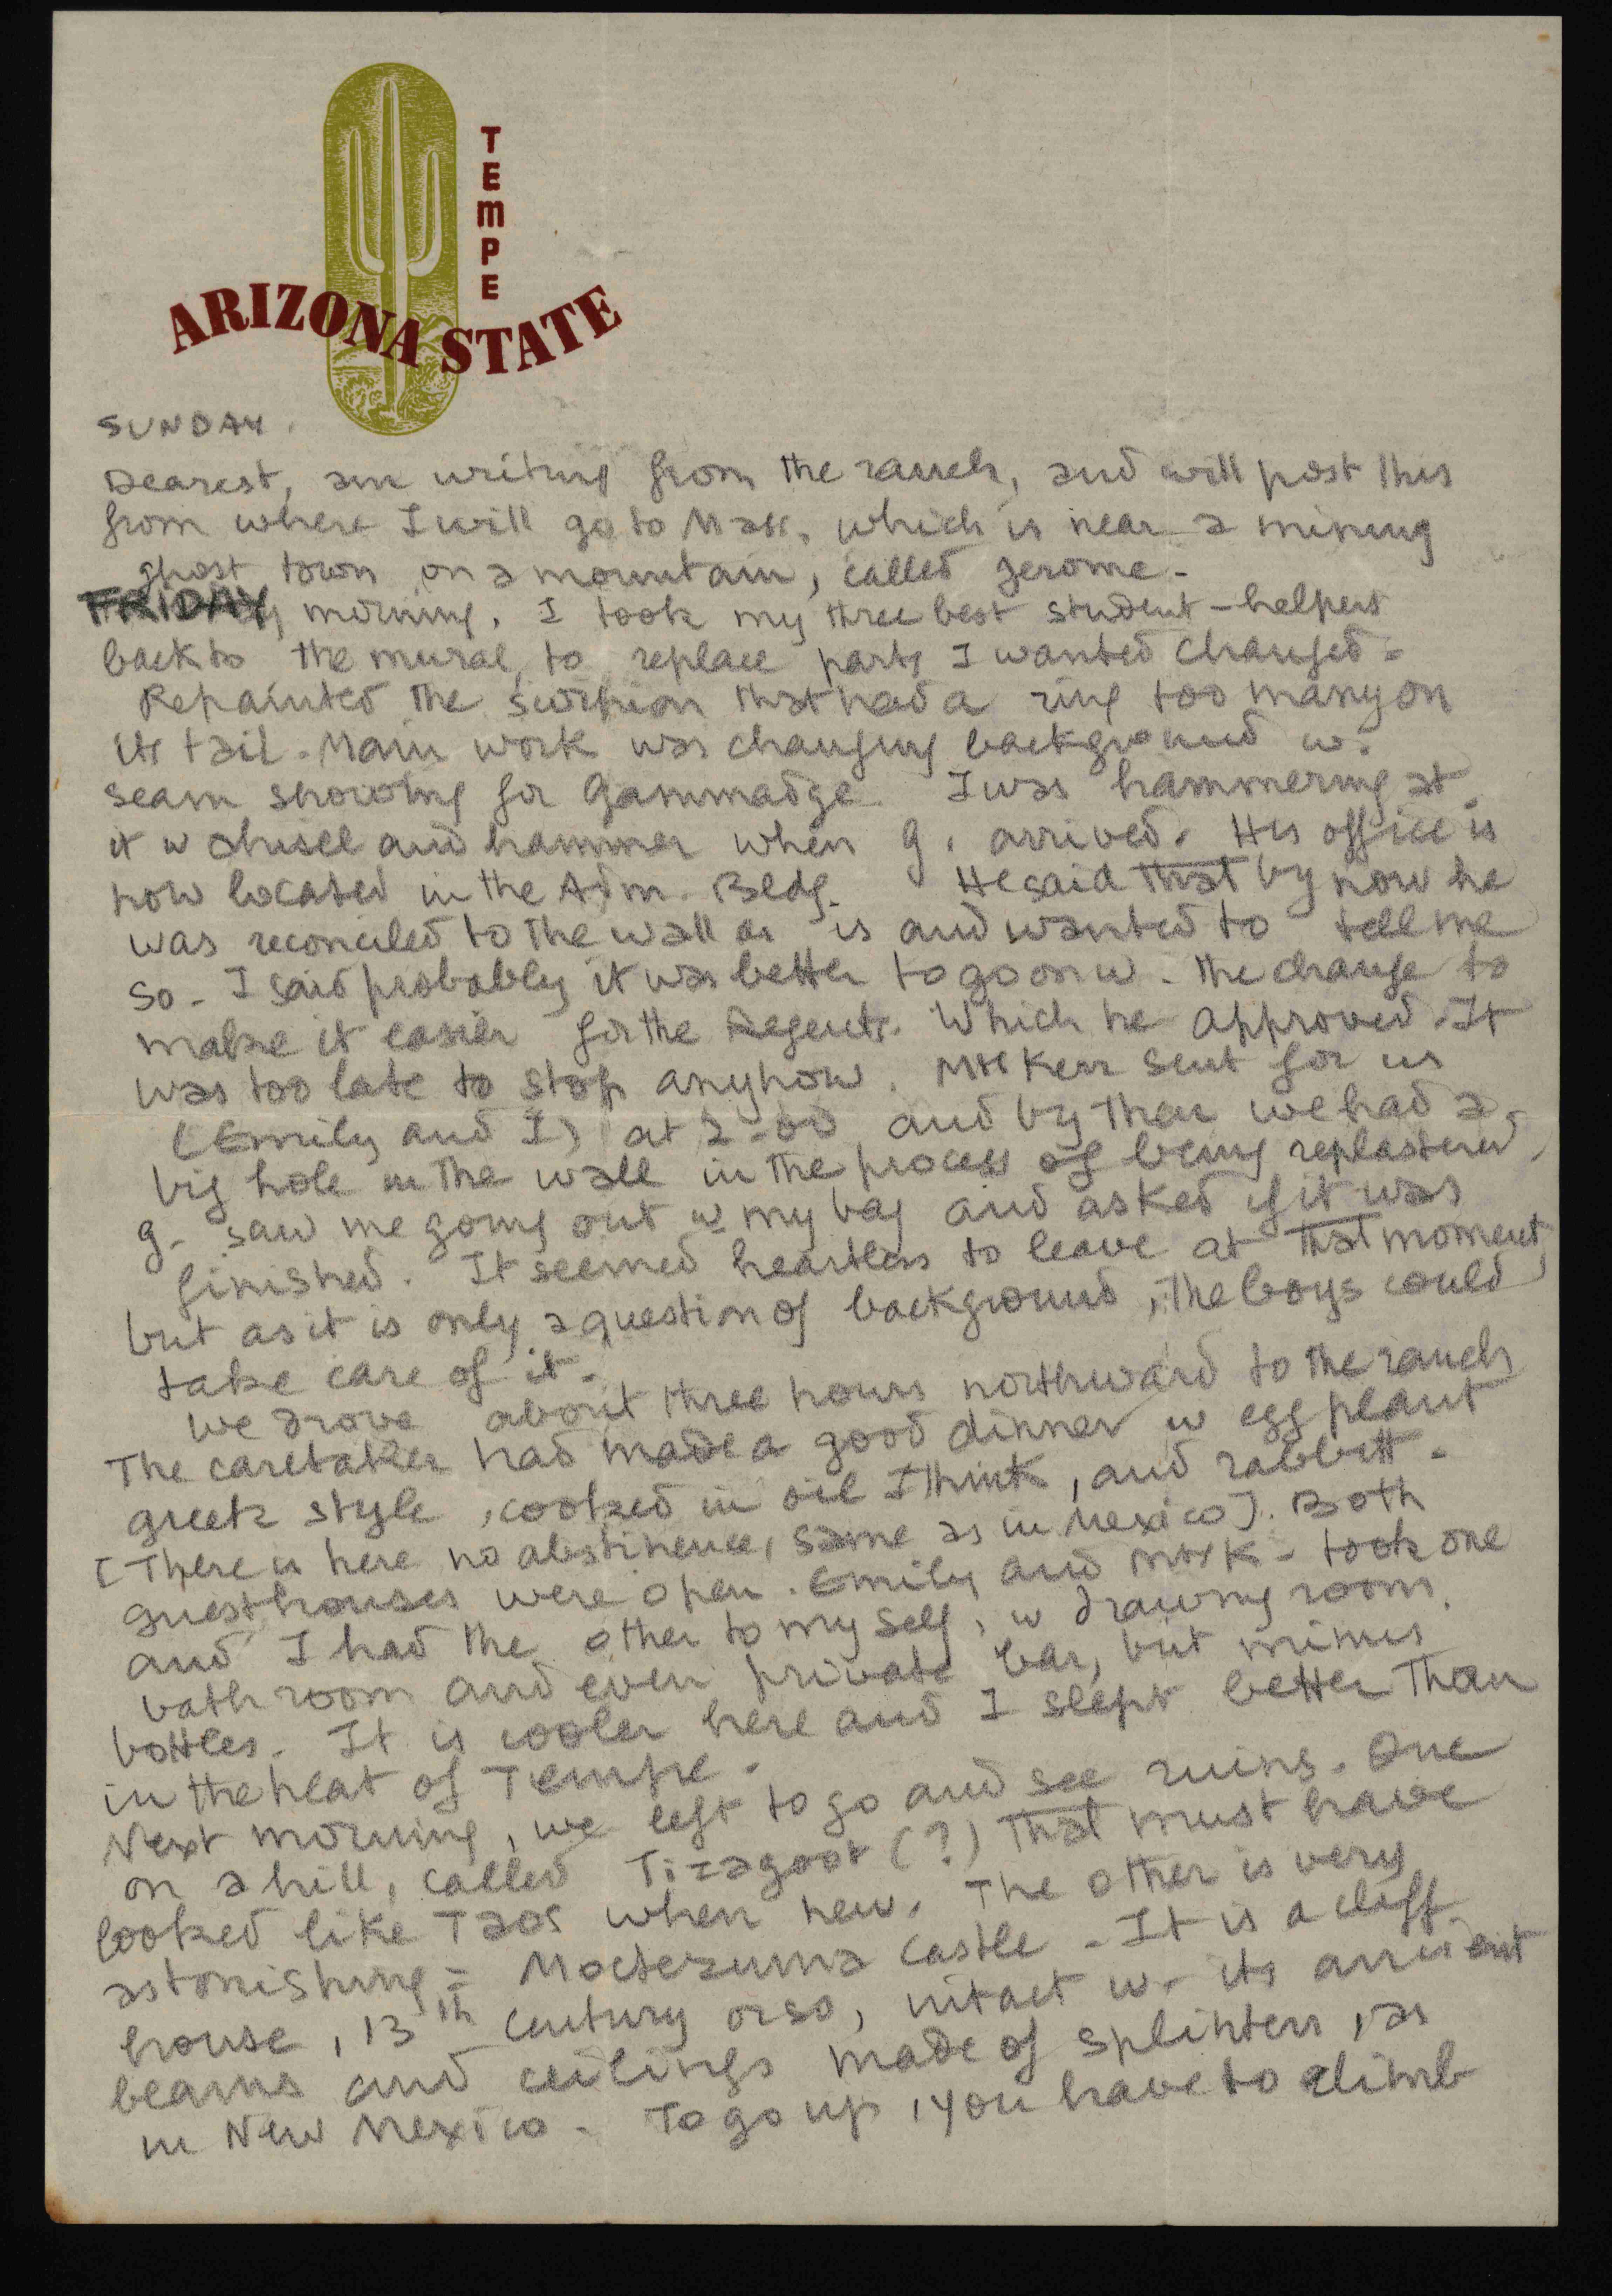 TEMPE
ARIZONA STATE
SUNDAY.
Dearest, am writing from the ranch, and will post this
from where I will go to Mass, which is near a mining
ghost town on a mountain, called Jerome-
FRIDAY morning, I took my three best student-helpers
back to the mural, to replace parts I wanted changed-
Repainted the scorpion that had a ring too many on
its tail. Main work was changing background w.
seam showing for Gammadge. I was hammering at
it w chisel and hammer when g. arrived. His office is
now located in the Adm. Bldg. He said that by now he
was reconciled to the wall as is and wanted to tell me
so- I said probably it was better to go on w. the change to
make it easier for the Regents. Which he approved. It
was too late to stop anyhow. Mrs Kerr sent for us
(Emily and I) at 2-00 and by then we had a
big hole in the wall in the process of being replastered,
g- saw me going out w my bag and asked if it was
finished. It seemed heartless to leave at that moment,
but as it is only a question of background, the boys could
take care of it.
We drove about three hours northward to the ranch
The caretaker had made a good dinner w egg plant
greek style, cooked in oil I think, and rabbitt-
[There is here no abstinence, same as in Mexico]. Both
guesthouses were open. Emily and Mrs K- took one
and I had the other to my self, w drawing room,
bath room and even private bar, but minus
bottles. It is cooler here and I slept better than
in the heat of Tempe.
Next morning, we left to go and see ruins. One
on a hill, called Tizagoot (?) that must have
looked like Taos when new. The other is very
astonishing= Moctezuma Castle - It is a cliff
house, 13th century or so, intact w- its ancient
beams and ceilings made of splinters, as
in New Mexico - To go up, you have to climb